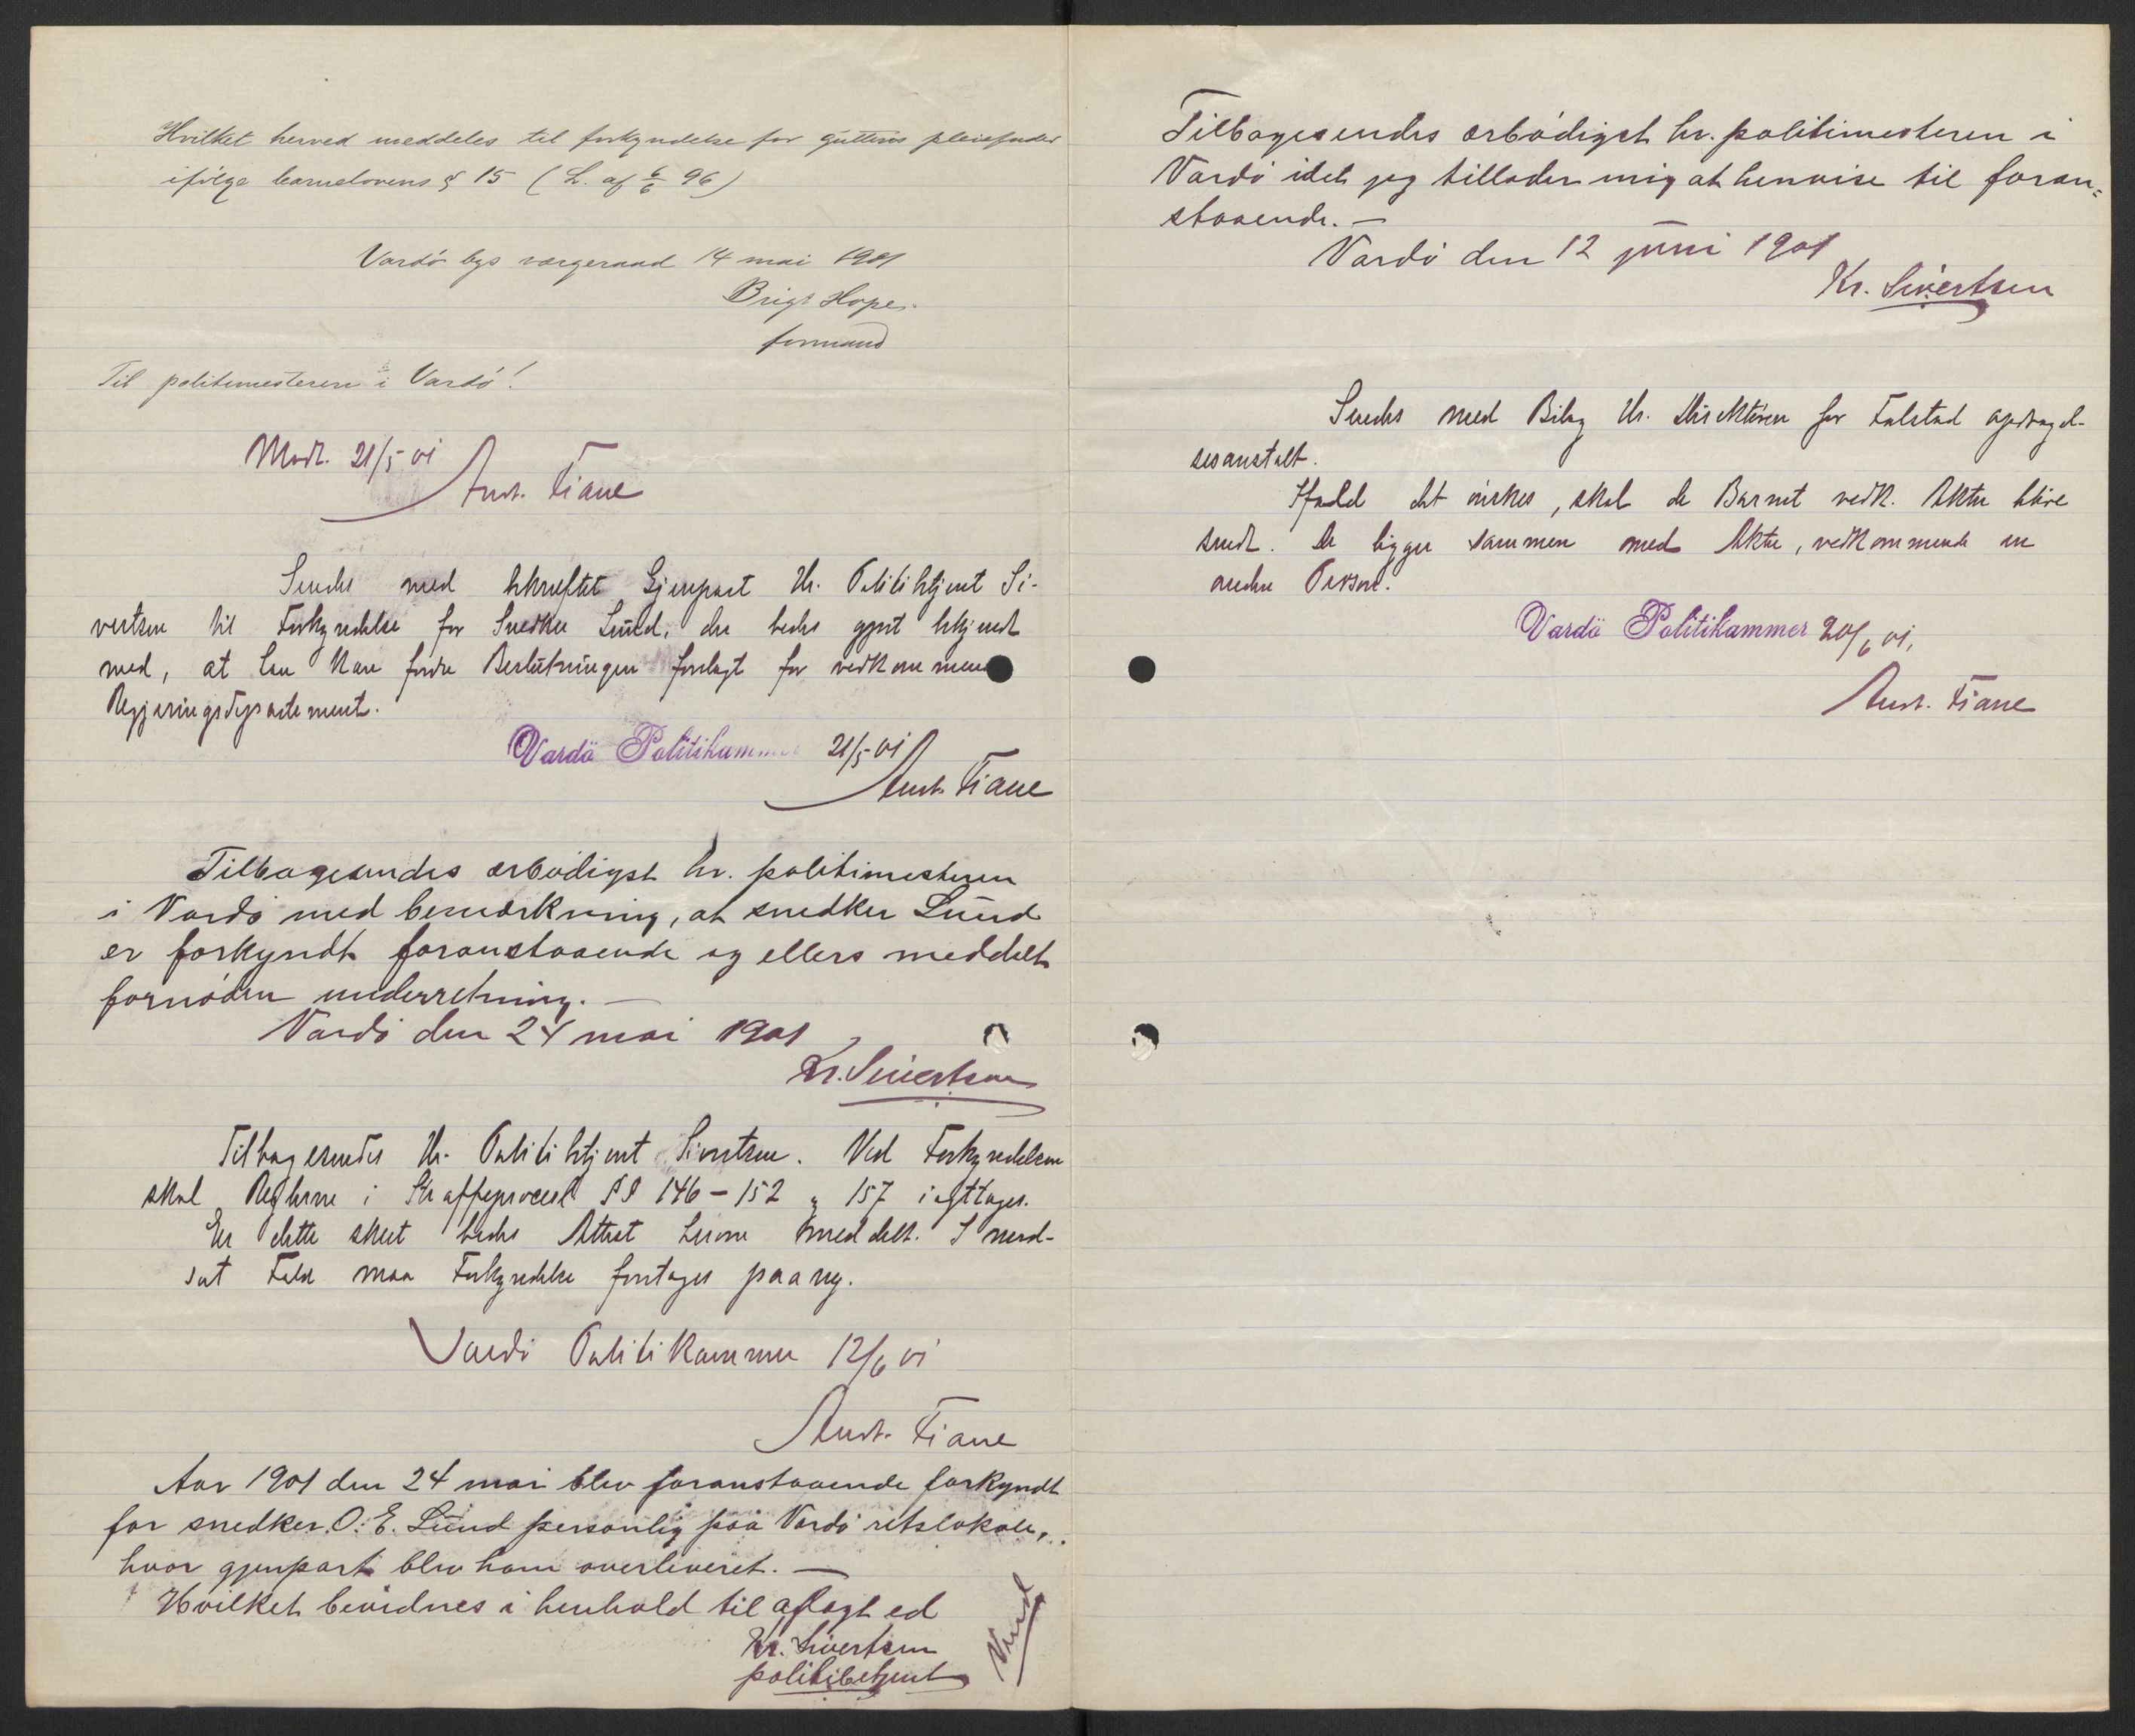 Hvilket herved meddeles til forkyndelse for guttens pleiefader
ifølge barnelovens § 15 (L. af 6/6 96)
Vardø bys vergeraad 14 mai 1901
Brigt Hope.
formand
Til politimesteren i Vardø!
Modt. 21/5 01
Andr. Fiane
Sendes med bekræftet Gjenpart Hr. Politibetjent Si-
vertsen til Forkyndelse for Snedker Lund, der bedes gjort bekjendt
med, at han kan fordre Beslutningen forelagt for vedkommende
Regjeringsdepartement.
Vardö Politikammer 21/5 01
Andr. Fiane
Tilbagesendes ærbødigst hr. politimesteren
i Vardø med bemærkning, at snedker Lund
er forkyndt foranstaaende og ellers meddelt
fornøden underretning. —
Vardø den 24 mai 1901
Kr. Sivertsen
Tilbagesendes Hr. Politibetjent Sivertsen. Ved Forkyndelsen
skal Reglerne i Straffeprocesl §§ 146 - 152 og 157 iagttages.
Er dette skeet bedes Attest herom meddelt. I mod-
sat Fald maa Forkyndelse foretages paa ny.
Vardø Politikammer 12/6 01
Andr. Fiane
Aar 1901 den 24 mai blev foranstaaende forkyndt
for snedker O. E. Lund personlig paa Vardø retslokale,
hvor gjenpart blev ham overleveret. —
Hvilket bevidnes i henhold til aflagt ed
Kr. Sivertsen
politibetjent
Vend
Tilbagesendes ærbødigst hr. politimesteren i
Vardø idet jeg tillader mig at henvise til foran=
staaende. —
Vardø den 12 juni 1901
Kr. Sivertsen
Sendes med Bilag Hr. Direktøren for Falstad opdragel-
sesanstalt.
Ifald det ønskes, skal de Barnet vedk. Akter blive
sendt. De ligger sammen med Akter, vedkommende en
anden Person.
Vardö Politikammer 20/6 01,
Andr. Fiane